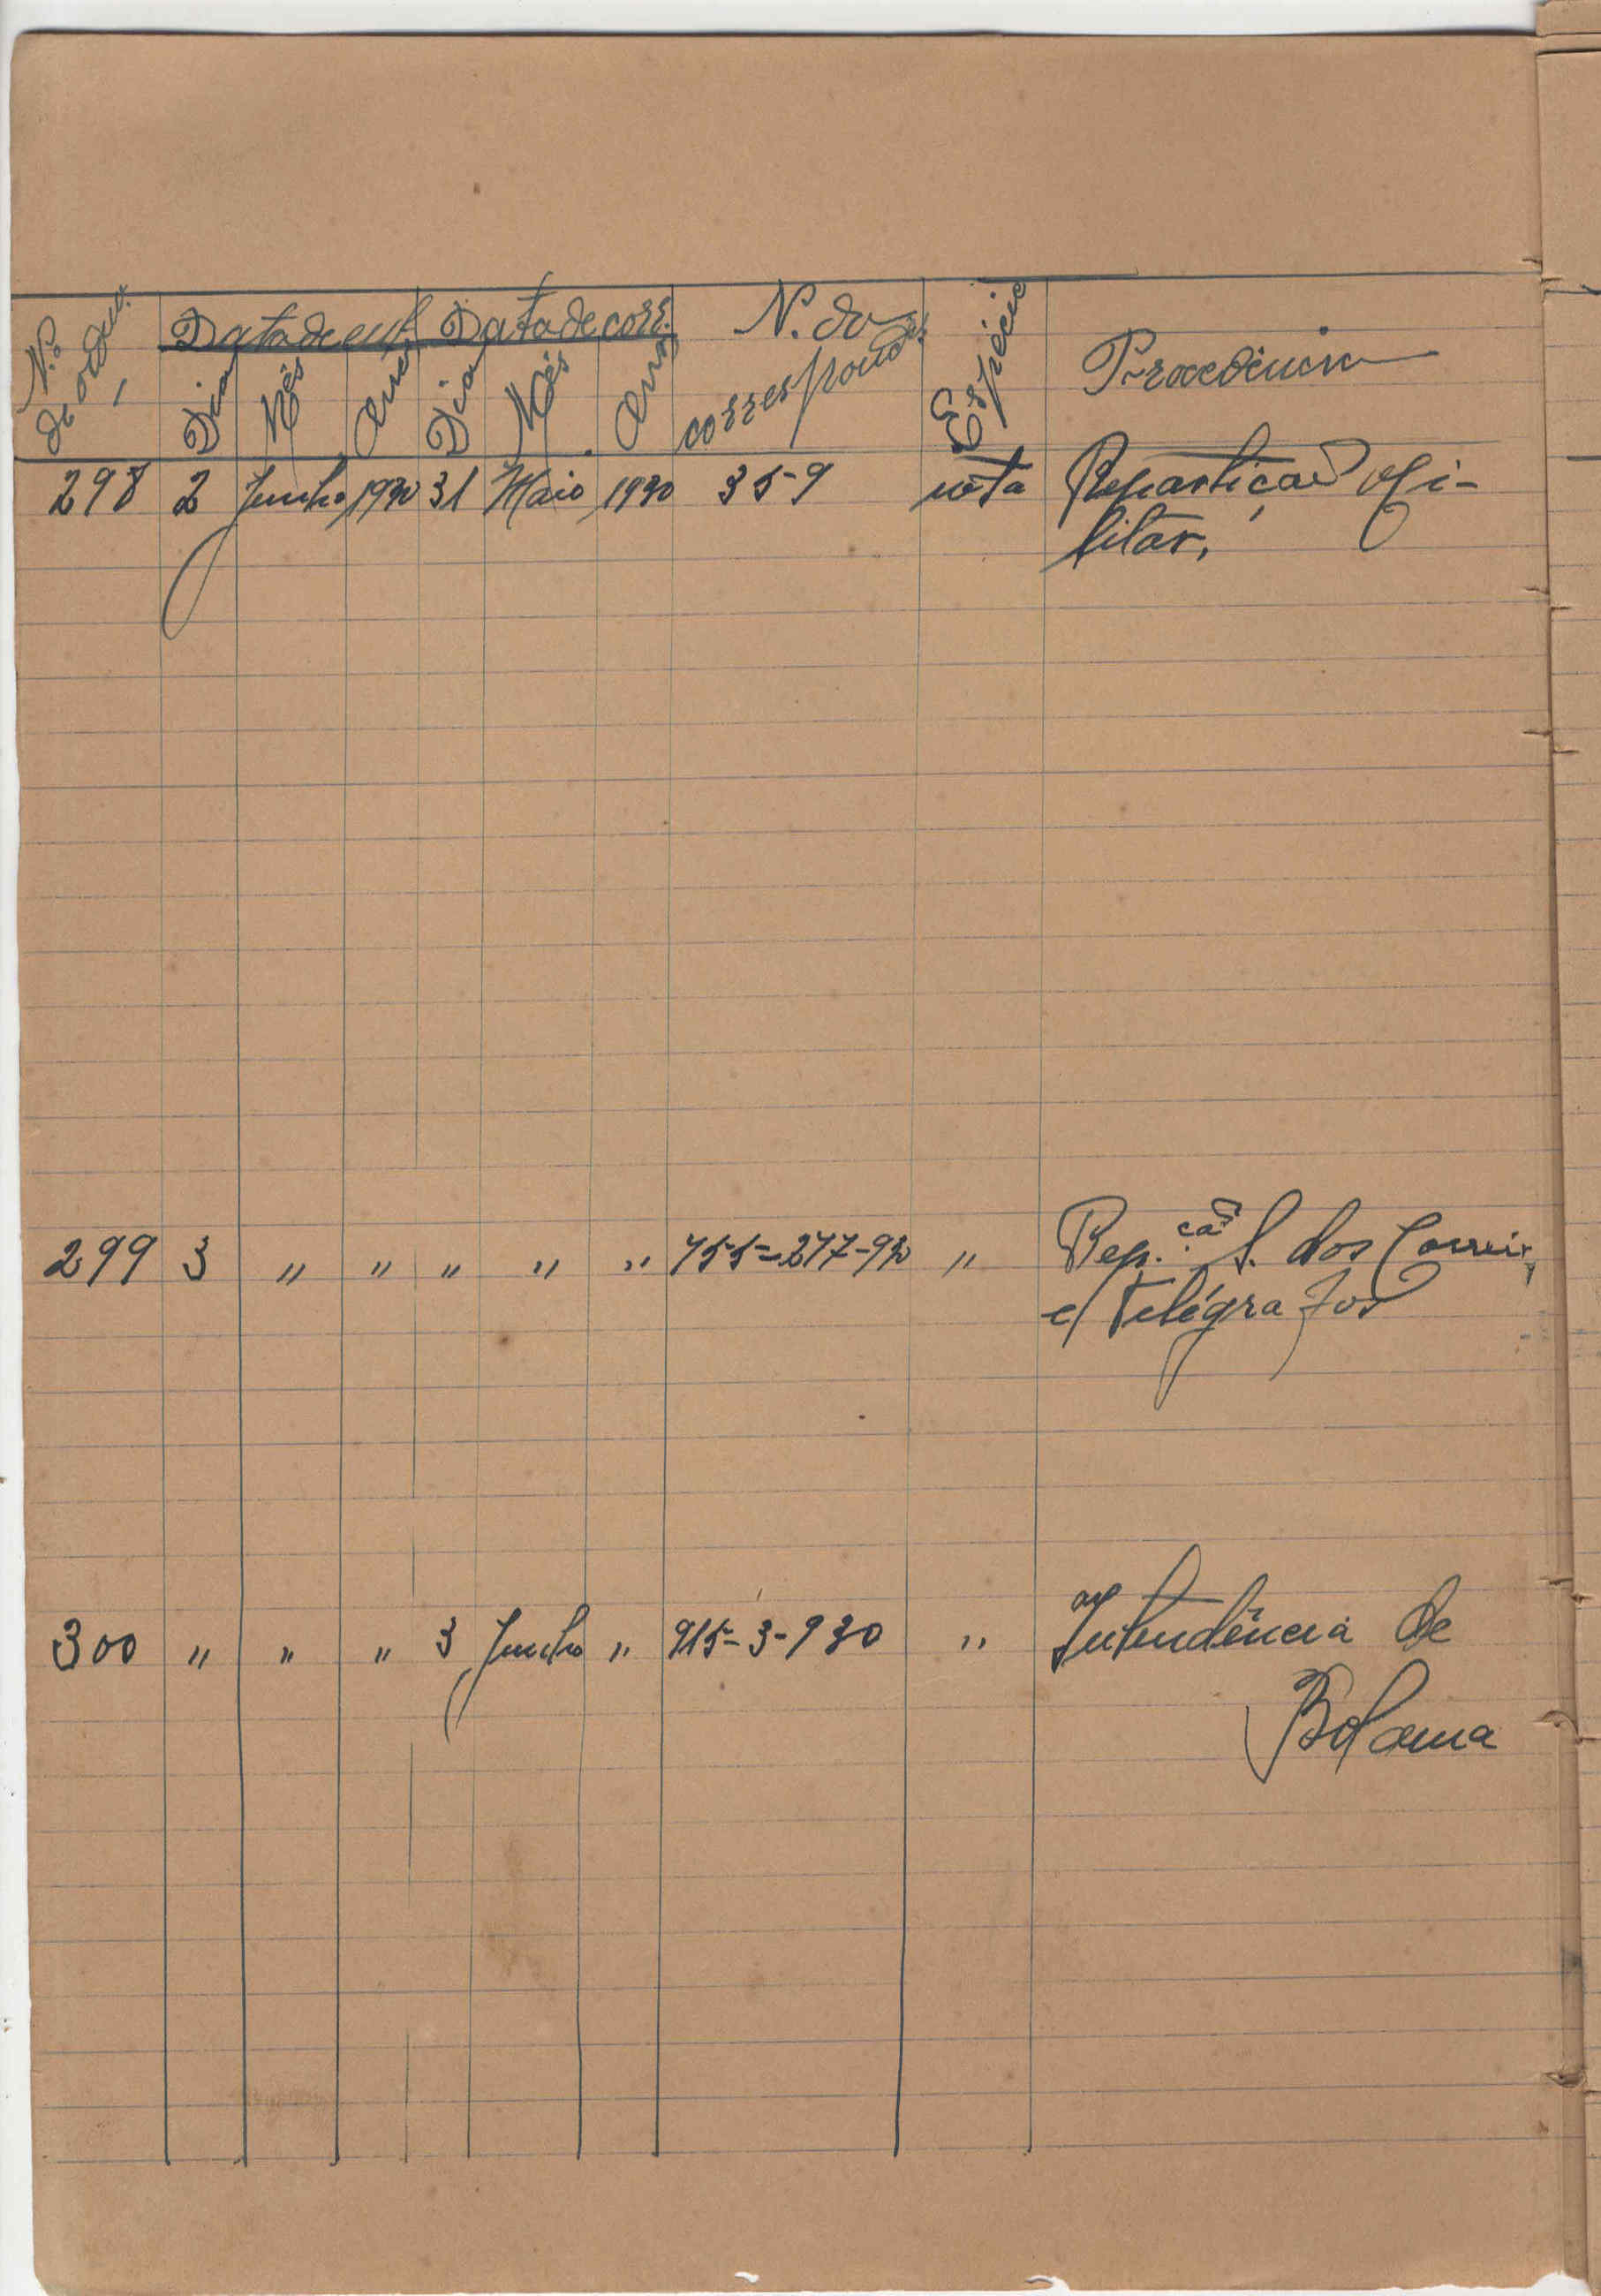 N.º de ordem. Data de ent. Data de corr. N. do correspond. Espécie Procedência
Dia Mês Ano Dia Mês Ano
298 2 Junho 1930 31 Maio 1930 35-9 nota Repartição Mi-
litar,
299 3 " " " " " 455=277-930 " Rep.ção S. dos Correios
e Telégrafos
300 " " " 3 Junho " 915-3-930 " Intendência de
Bolama